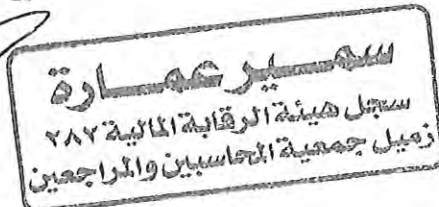 سمير عمارة
سجل هيئة الرقابة المالية ٢٨٢
زميل جمعية المحاسبين والمراجعين